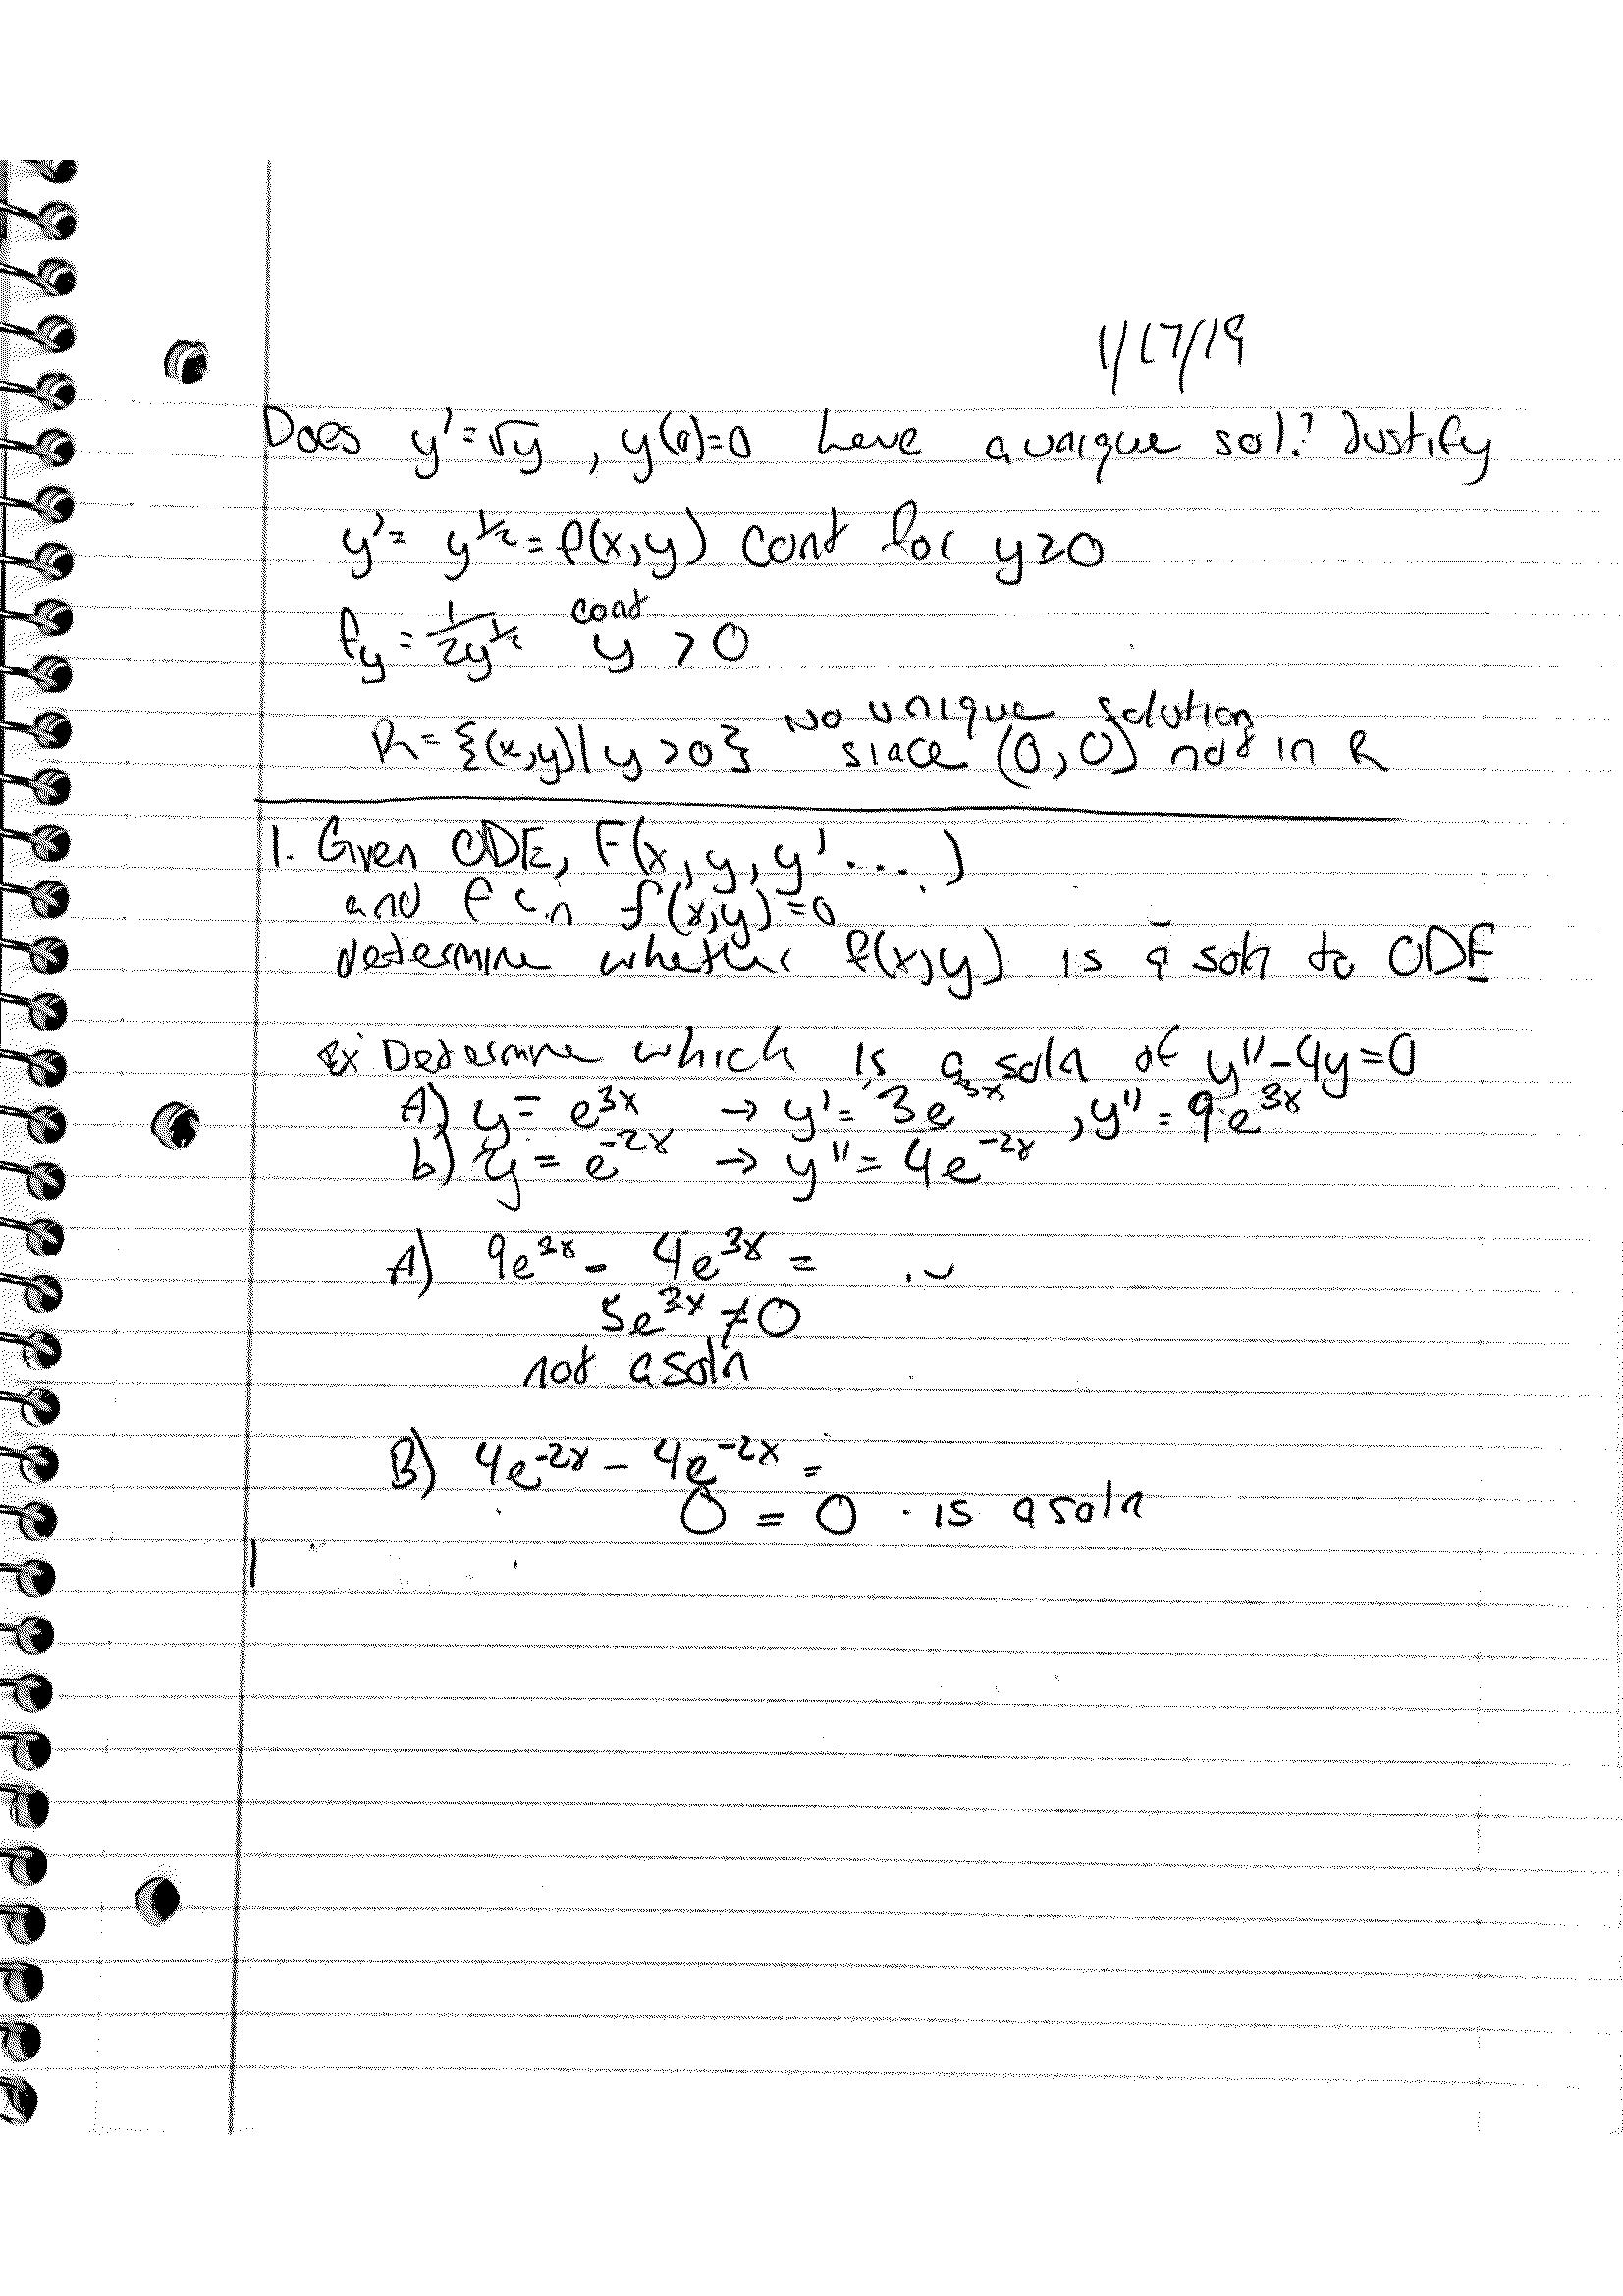 1/17/19
Does y' = √y , y(0)=0 have a unique sol.? Justify
y' = y^½ = f(x,y) cont for y≥0
f_y = 1/(2y^½) cont y > 0
R = {(x,y) | y > 0} No unique solution
since (0,0) not in R
1. Given ODE, F(x, y, y' ....)
and fcn f(x,y)=0
determine whether f(x,y) is a soln to ODE
Ex Determine which is a soln of y''-4y=0
A) y = e^3x → y' = 3e^3x , y'' = 9e^3x
b) y = e^-2x → y'' = 4e^-2x
A) 9e^3x - 4e^3x =
5e^3x ≠ 0
not a soln
B) 4e^-2x - 4e^-2x =
0 = 0 · is a soln